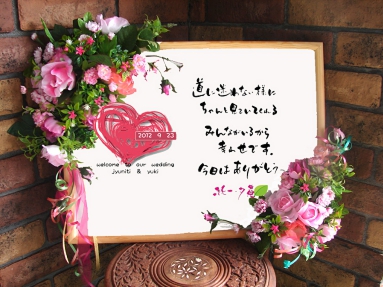 道に迷わない様に
ちゃんと見ていてくれる
みんながいるから
幸せです。
今日はありがとう。
2012 9 23
welcome to our wedding
jyuniti & yuki